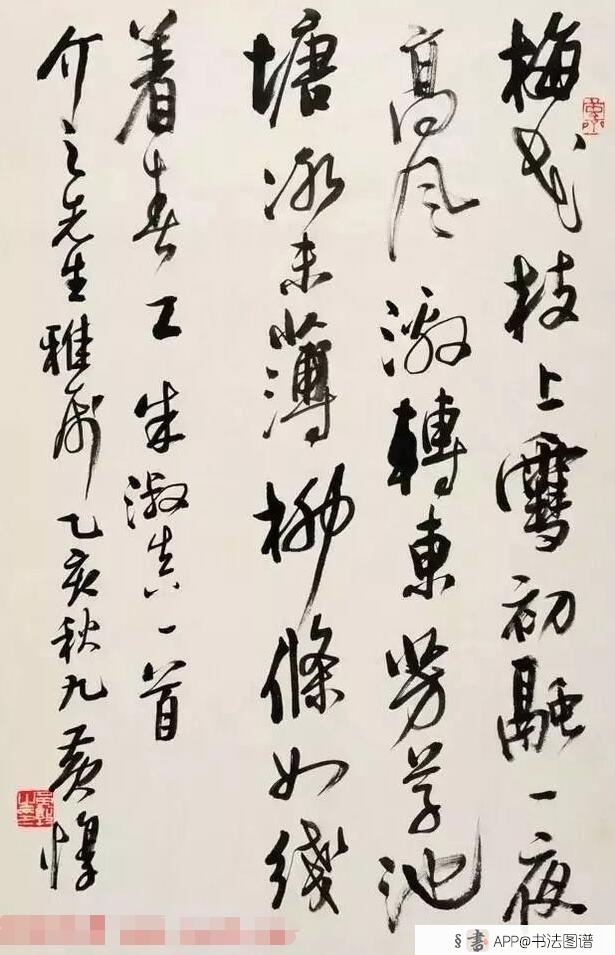 梅花枝上雪初融一夜
高风激轉東芳草池
塘冰未薄柳條如綫
着春工 朱淑真一首
介之先生雅属 乙亥秋九 黄惇
§書 APP@书法图谱